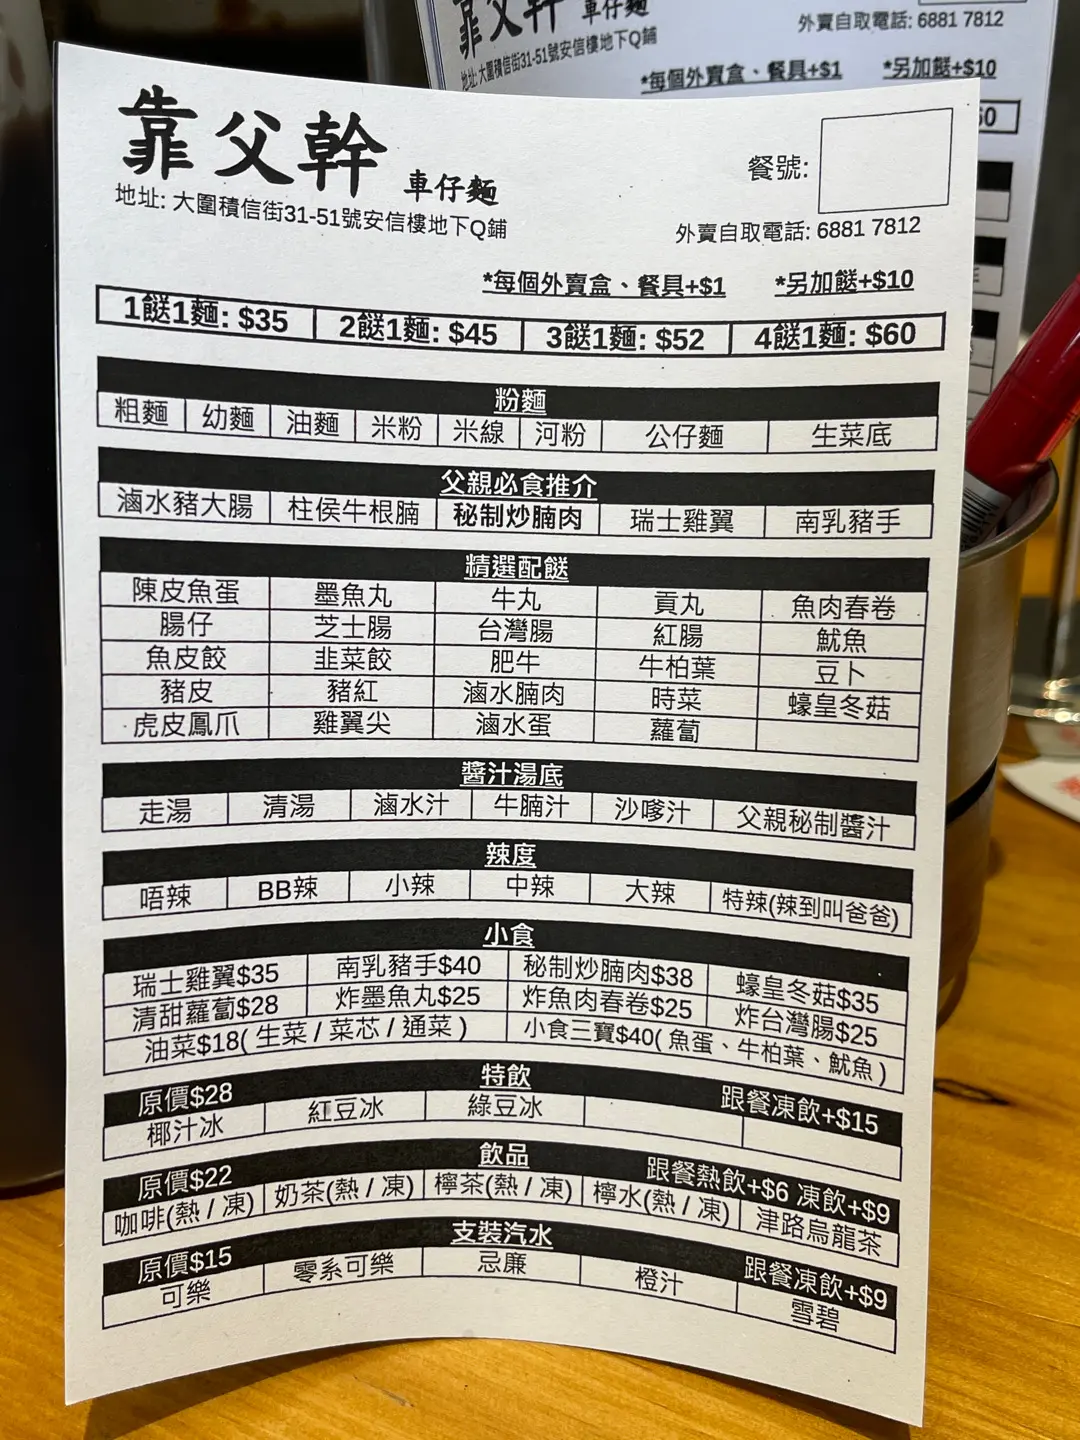 靠父幹 車仔麵
外賣自取電話: 6881 7812
地址: 大圍積信街31-51號安信樓地下Q鋪
*每個外賣盒、餐具+$1 *另加餸+$10
靠父幹 車仔麵
餐號:
地址: 大圍積信街31-51號安信樓地下Q鋪
外賣自取電話: 6881 7812
*每個外賣盒、餐具+$1 *另加餸+$10
1餸1麵: $35 2餸1麵: $45 3餸1麵: $52 4餸1麵: $60
粉麵
粗麵 幼麵 油麵 米粉 米線 河粉 公仔麵 生菜底
父親必食推介
滷水豬大腸 柱侯牛根腩 秘制炒腩肉 瑞士雞翼 南乳豬手
精選配餸
陳皮魚蛋 墨魚丸 牛丸 貢丸 魚肉春卷
腸仔 芝士腸 台灣腸 紅腸 魷魚
魚皮餃 韭菜餃 肥牛 牛柏葉 豆卜
豬皮 豬紅 滷水腩肉 時菜 蠔皇冬菇
虎皮鳳爪 雞翼尖 滷水蛋 蘿蔔
醬汁湯底
走湯 清湯 滷水汁 牛腩汁 沙嗲汁 父親秘制醬汁
辣度
唔辣 BB辣 小辣 中辣 大辣 特辣(辣到叫爸爸)
小食
瑞士雞翼$35 南乳豬手$40 秘制炒腩肉$38 蠔皇冬菇$35
清甜蘿蔔$28 炸墨魚丸$25 炸魚肉春卷$25 炸台灣腸$25
油菜$18( 生菜 / 菜芯 / 通菜 ) 小食三寶$40( 魚蛋、牛柏葉、魷魚 )
原價$28 特飲 跟餐凍飲+$15
椰汁冰 紅豆冰 綠豆冰
原價$22 飲品 跟餐熱飲+$6 凍飲+$9
咖啡(熱 / 凍) 奶茶(熱 / 凍) 檸茶(熱 / 凍) 檸水(熱 / 凍) 津路烏龍茶
原價$15 支裝汽水 跟餐凍飲+$9
可樂 零系可樂 忌廉 橙汁 雪碧